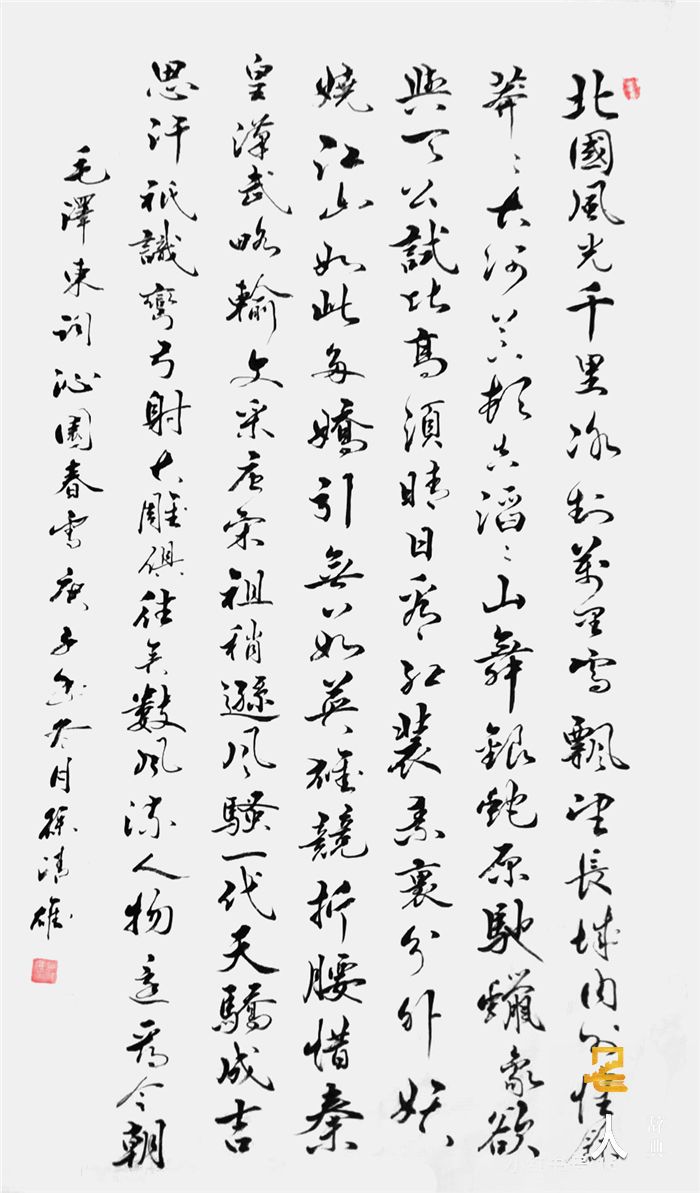 北國風光千里冰封萬里雪飄望長城内外惟餘
莽〻大河上下頓失滔〻山舞銀蛇原馳蠟象欲
與天公試比高須晴日看紅裝素裹分外妖
嬈江山如此多嬌引無數英雄競折腰惜秦
皇漢武略輸文采唐宋祖稍遜風騷一代天驕成吉
思汗祇識彎弓射大雕俱往矣數風流人物還看今朝
毛澤東詞沁園春雪庚子冬月徐清雄
人
辞典